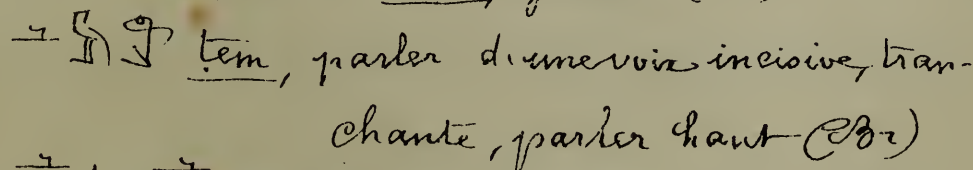 tem, parler d'une voix incisive, tran-
chante, parler haut (Br)